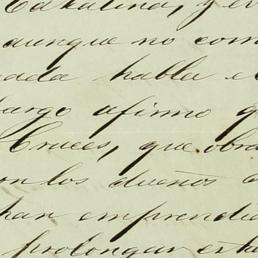 Catalina, y
aunque no com
nada habla e
bargo afirmo q
Cruces, que obra
con los dueños
han emprendi
prolongar esta